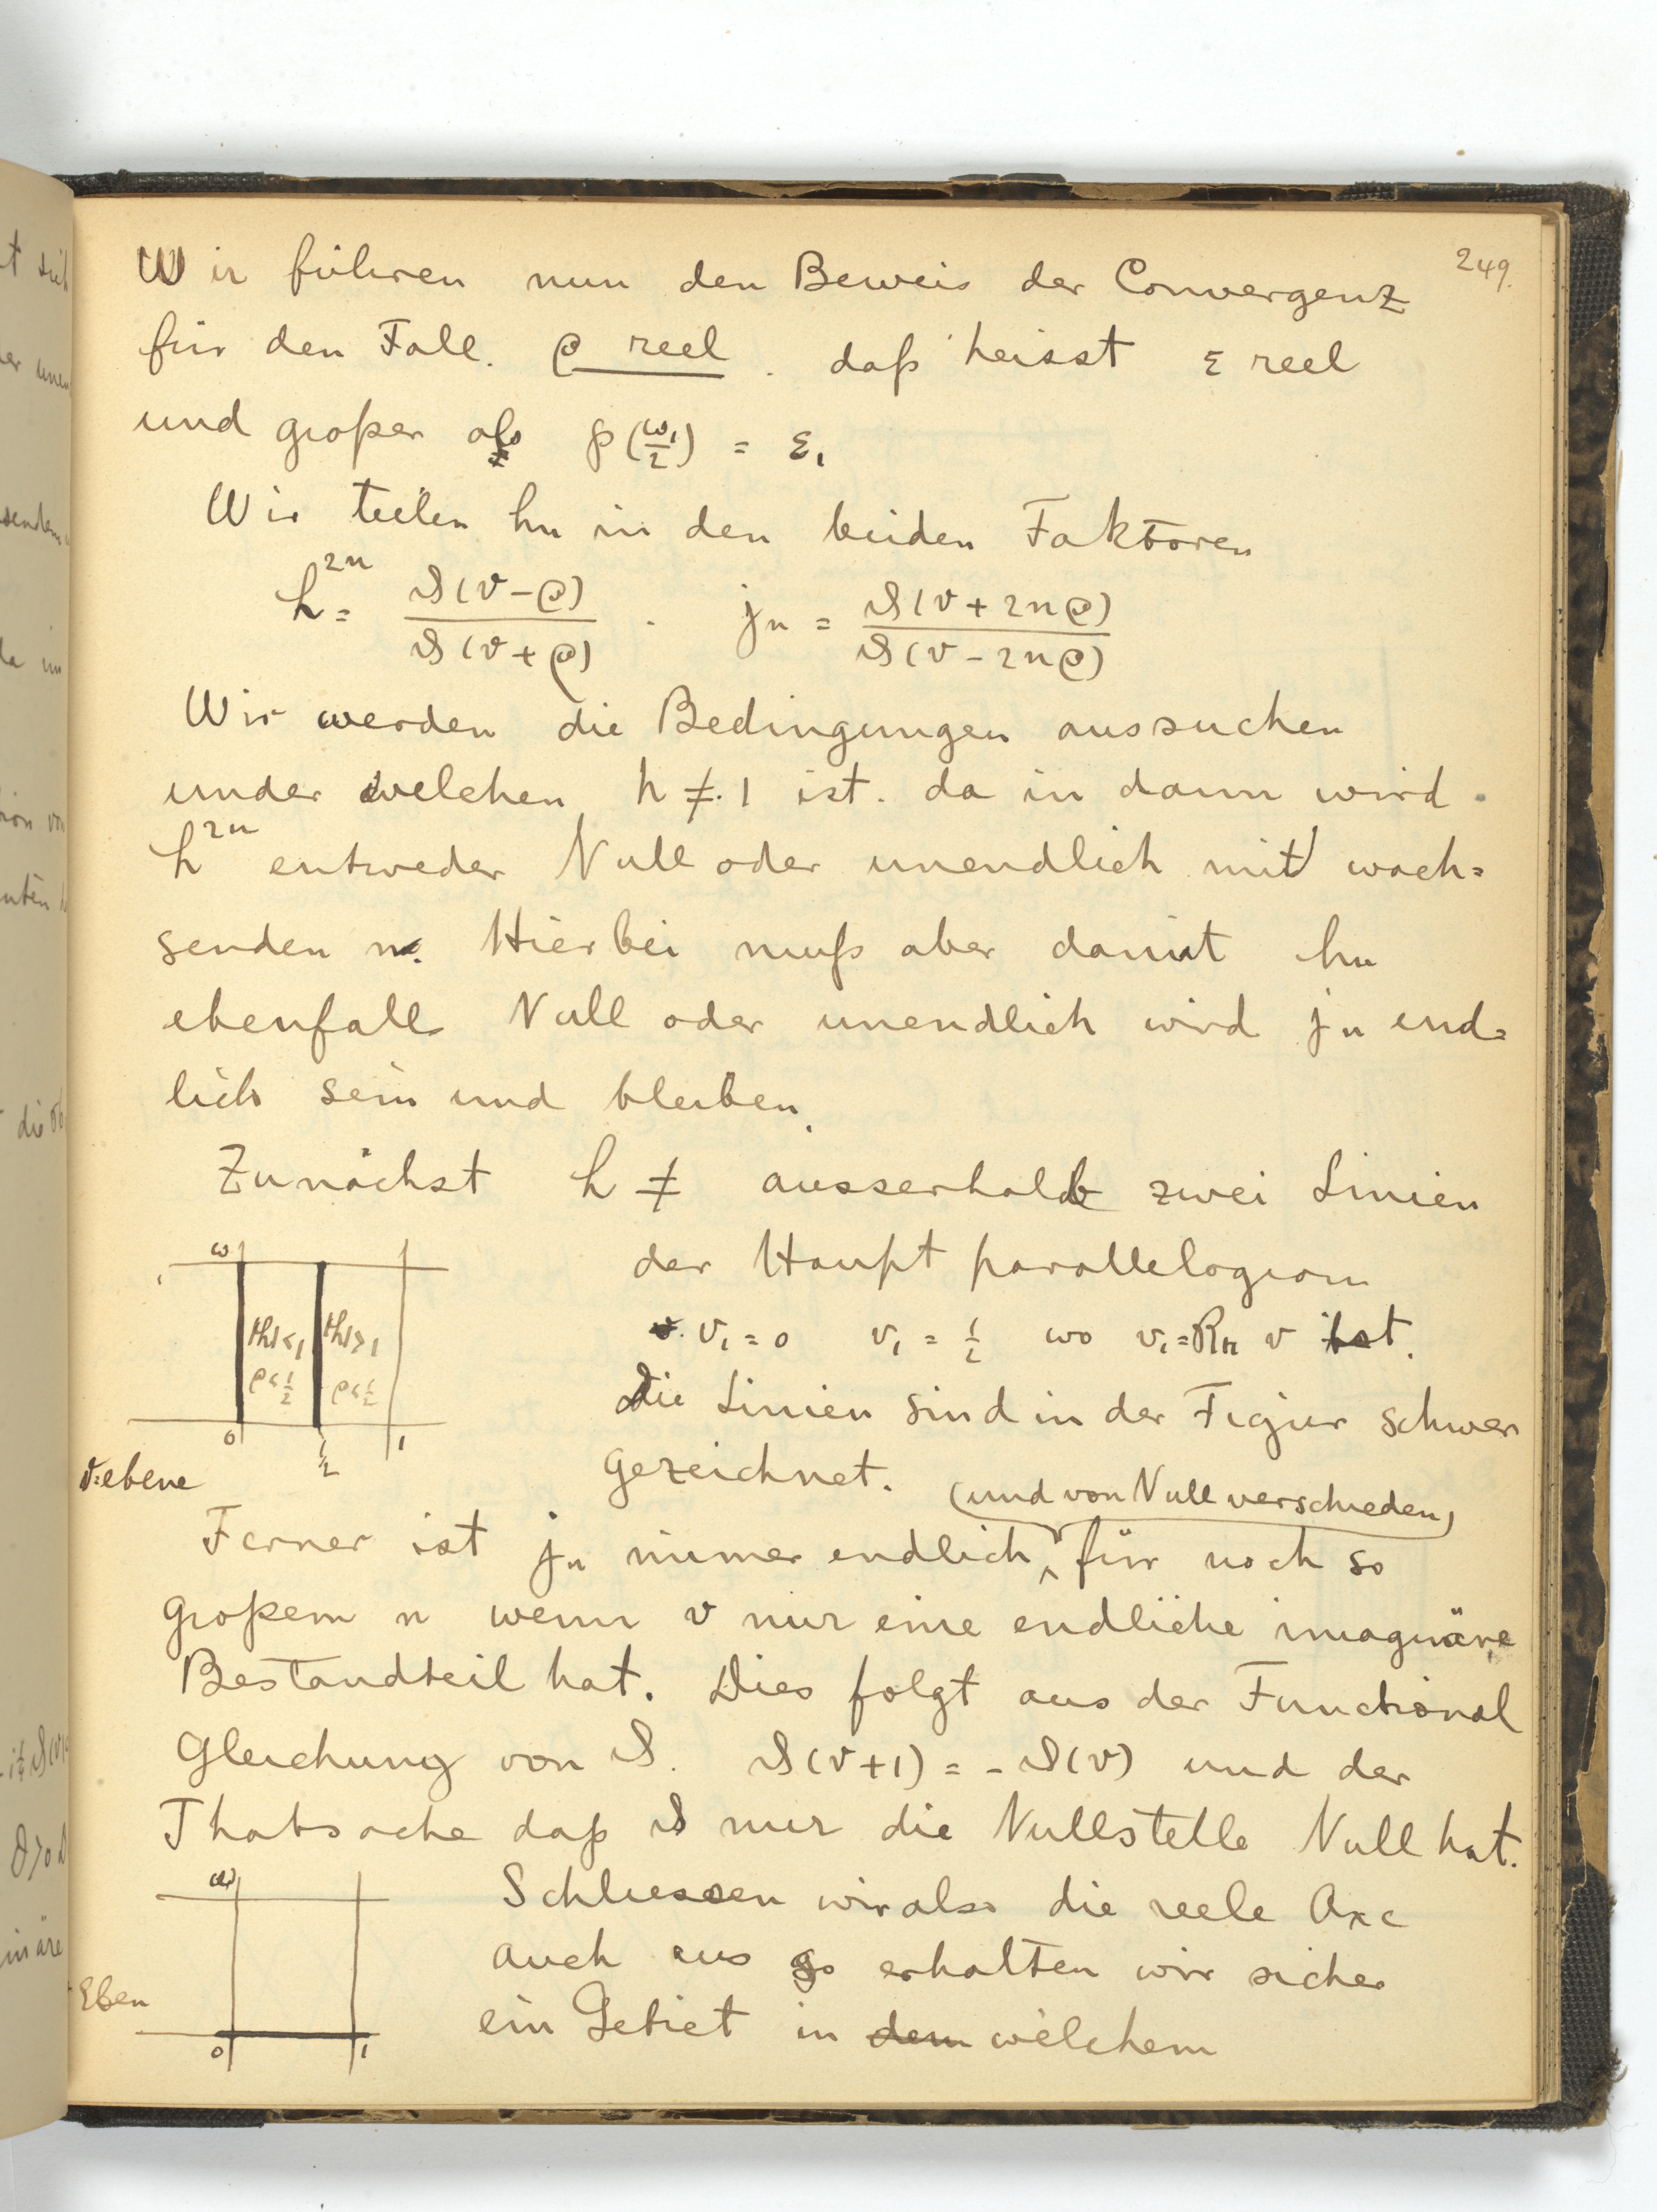 249.
Wir führen nun den Beweis der Convergenz
für den Fall. ρ reel. daß heisst ε reel
und großer als ℘(ω₁/2) = ε₁
Wir teilen hn in den beiden Faktoren
h²ⁿ = ϑ(v-ρ)/ϑ(v+ρ) . jn = ϑ(v+2nρ)/ϑ(v-2nρ)
Wir werden die Bedingungen aussuchen
under welchen h ≠ 1 ist. da in dann wird
h²ⁿ entweder Null oder unendlich mit wach=
senden n. Hierbei muß aber damit hn
ebenfalls Null oder unendlich wird jn end=
lich sein und bleiben.
Zunächst h ≠ ausserhalb zwei Linien
der Haupt parallelogram
v₁ = 0 v₁ = 1/2 wo v₁ = v ist.
Die Linien sind in der Figur schwer
gezeichnet.
ω
|h|<1 |h|>1
ρ<1/2 ρ<1/2
0 1/2 1
v=ebene
(und von Null verschieden)
Ferner ist jn immer endlich, für noch so
großem n wenn v nur eine endliche imaginäre
Bestandteil hat. Dies folgt aus der Functional
Gleichung von ϑ. ϑ(v+1) = -ϑ(v) und der
Thatsache daß ϑ nur die Nullstelle Null hat.
Schliessen wir also die reele Axe
auch aus so erhalten wir sicher
ein Gebiet in dem welchem
ω
Eben
0 1